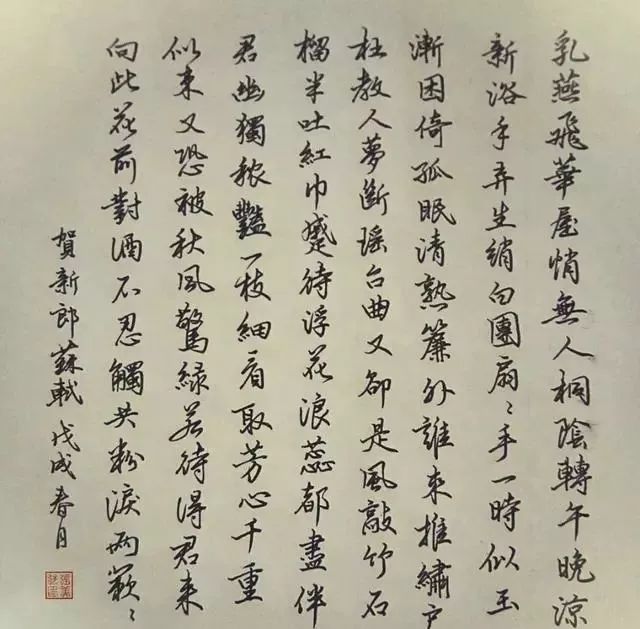 乳燕飛華屋悄無人桐陰轉午晚涼
新浴手弄生綃白團扇〻手一時似玉
漸困倚孤眠清熟簾外誰來推繡戶
枉教人夢斷瑶台曲又卻是風敲竹石
榴半吐紅巾蹙待浮花浪蕊都盡伴
君幽獨秾豔一枝細看取芳心千重
似束又恐被秋風驚綠若待得君來
向此花前對酒不忍觸共粉淚兩簌〻
賀新郎蘇軾戊戌春月